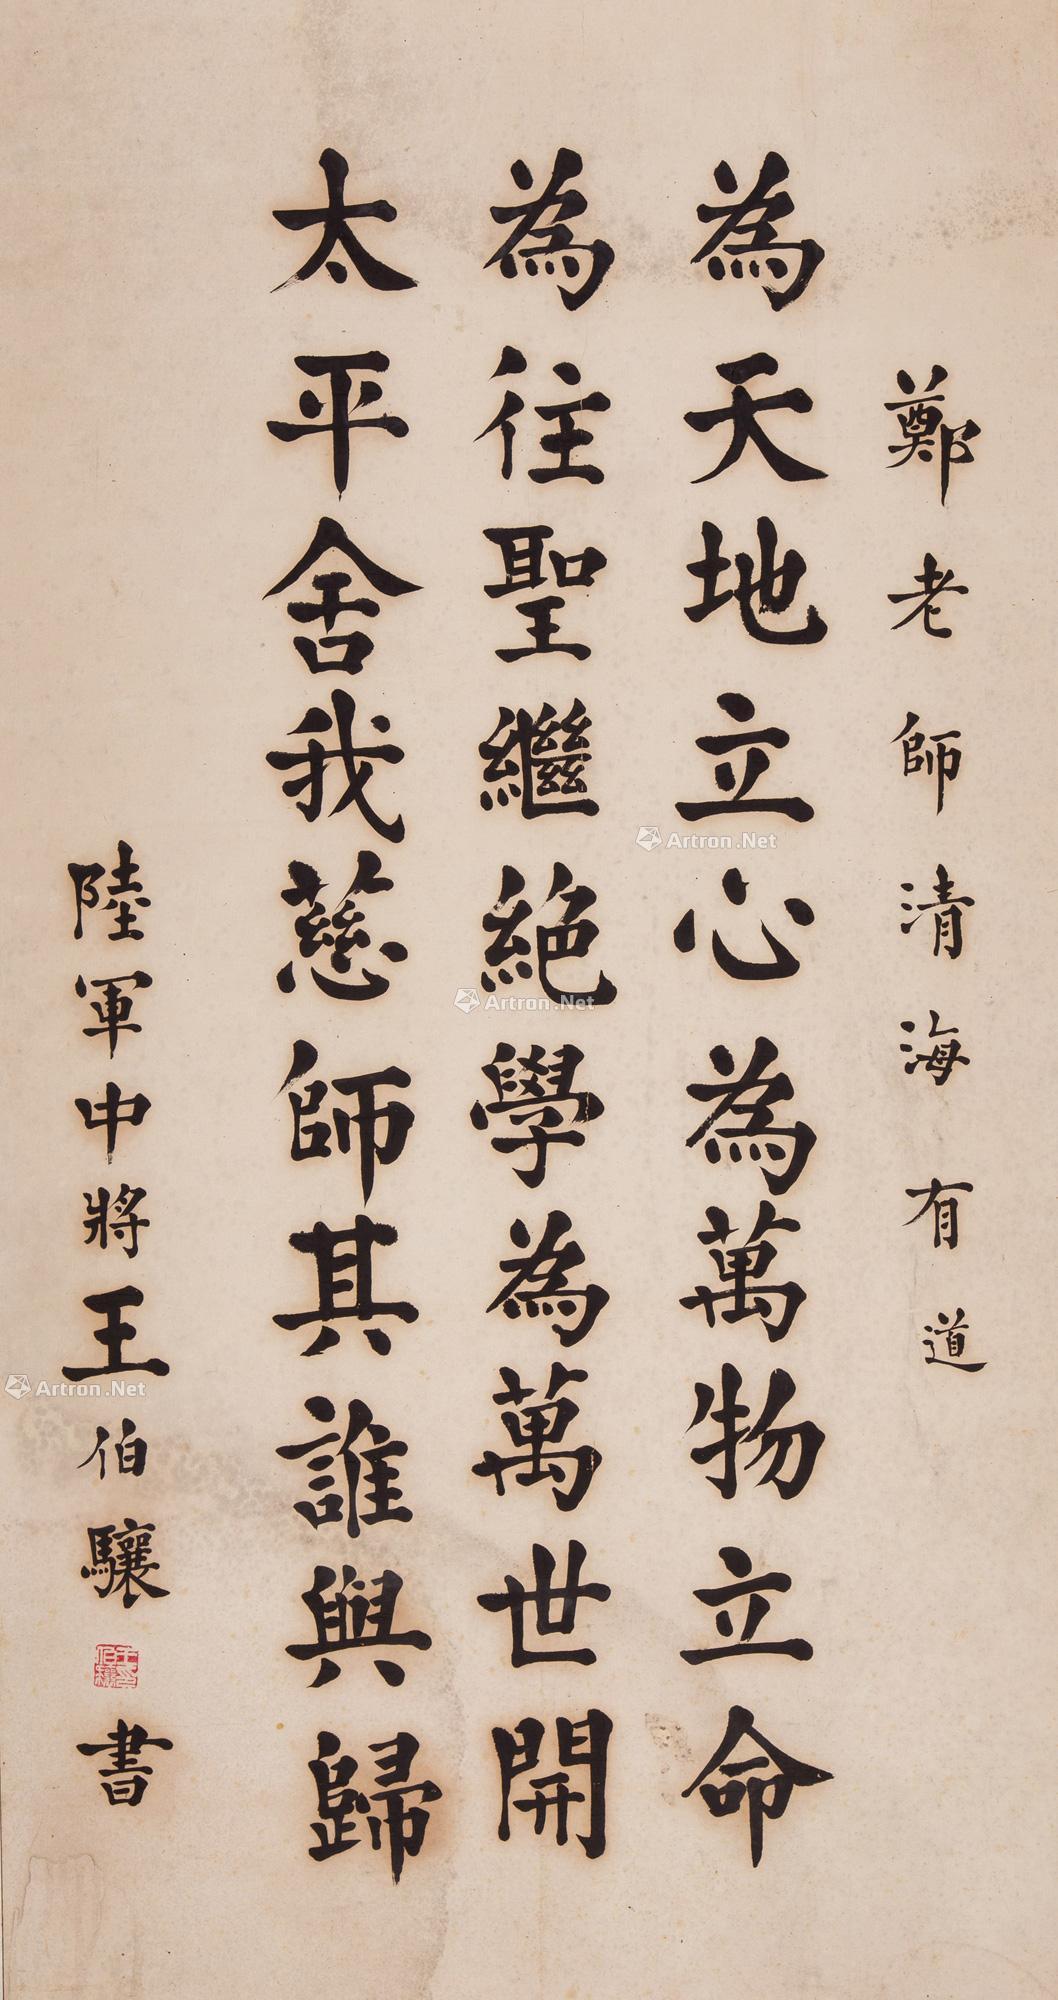 鄭老師清海有道
為天地立心為萬物立命
為往聖繼絕學為萬世開
太平舍我慈師其誰與歸
陸軍中將王伯驤書
王伯驤印
Artron.Net
Artron.Net
Artron.Net